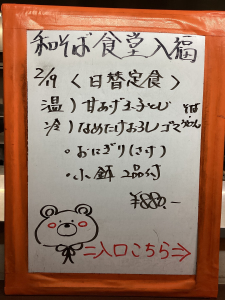 和そば食堂入福
2/19 〈日替定食〉
温）甘あげ玉子とじ そば
冷）なめたけおろしゴマ うどん
・おにぎり(さけ)
・小鉢 2品付
¥880.-
入口こちら⇒